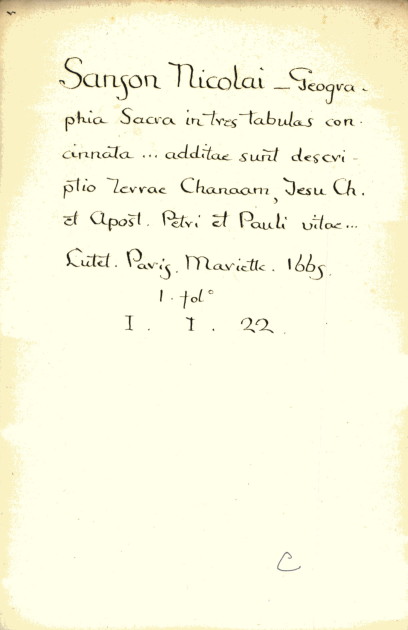 Sanson Nicolai _ Geogra-
phia Sacra in tres tabulas con-
cinnata ... additae sunt descri-
ptio Terrae Chanaam, Jesu Ch.
et Apost. Petri et Pauli vitae...
Lutet. Paris. Mariette. 1665.
1. fol°
I. I. 22.
C